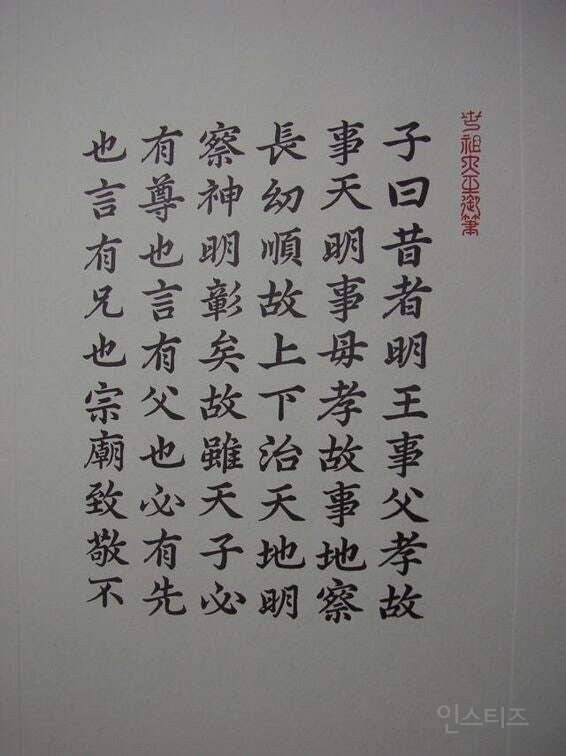 世祖大王御筆
子曰昔者明王事父孝故
事天明事母孝故事地察
長幼順故上下治天地明
察神明彰矣故雖天子必
有尊也言有父也必有先
也言有兄也宗廟致敬不
인스티즈